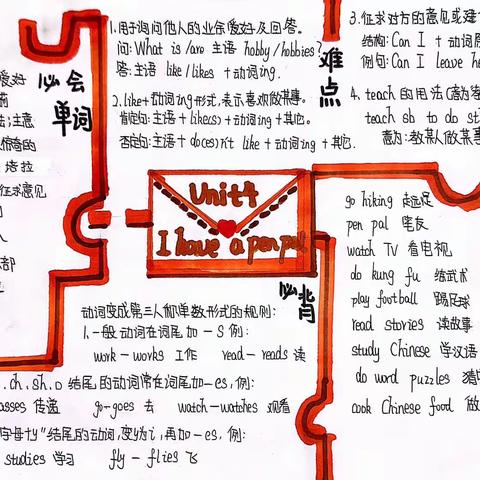 爱好
必会单词
主意
的
塔拉
征求意见
部
1.用于询问他人的业余爱好及回答。
问:What is /are 主语 hobby /hobbies?
答:主语 like / likes +动词ing.
2.like+动词ing形式,表示喜欢做某事。
肯定句:主语+like(s) +动词ing +其他.
否定句:主语+ do(es)n't like +动词ing + 其它.
难点
3.征求对方的意见或建
结构:Can I +动词原
例句:Can I leave
4. teach 的用法(意为
teach sb to do st
意为:教某人做某事
Unit4
I have a pen pal
必背
go hiking 去远足
pen pal 笔友
watch TV 看电视
do kung fu 练武术
play football 踢足球
read stories 读故事
study Chinese 学汉语
do word puzzles 猜
cook Chinese food 做
动词变成第三人称单数形式的规则:
1.一般动词在词尾加-s 例:
work-works 工作 read-reads 读
.ch.sh.o 结尾的动词常在词尾加-es,例:
asses 传递 go-goes 去 watch-watches 观看
字母+y"结尾的动词,变y为i,再加-es,例:
studies 学习 fly-flies 飞